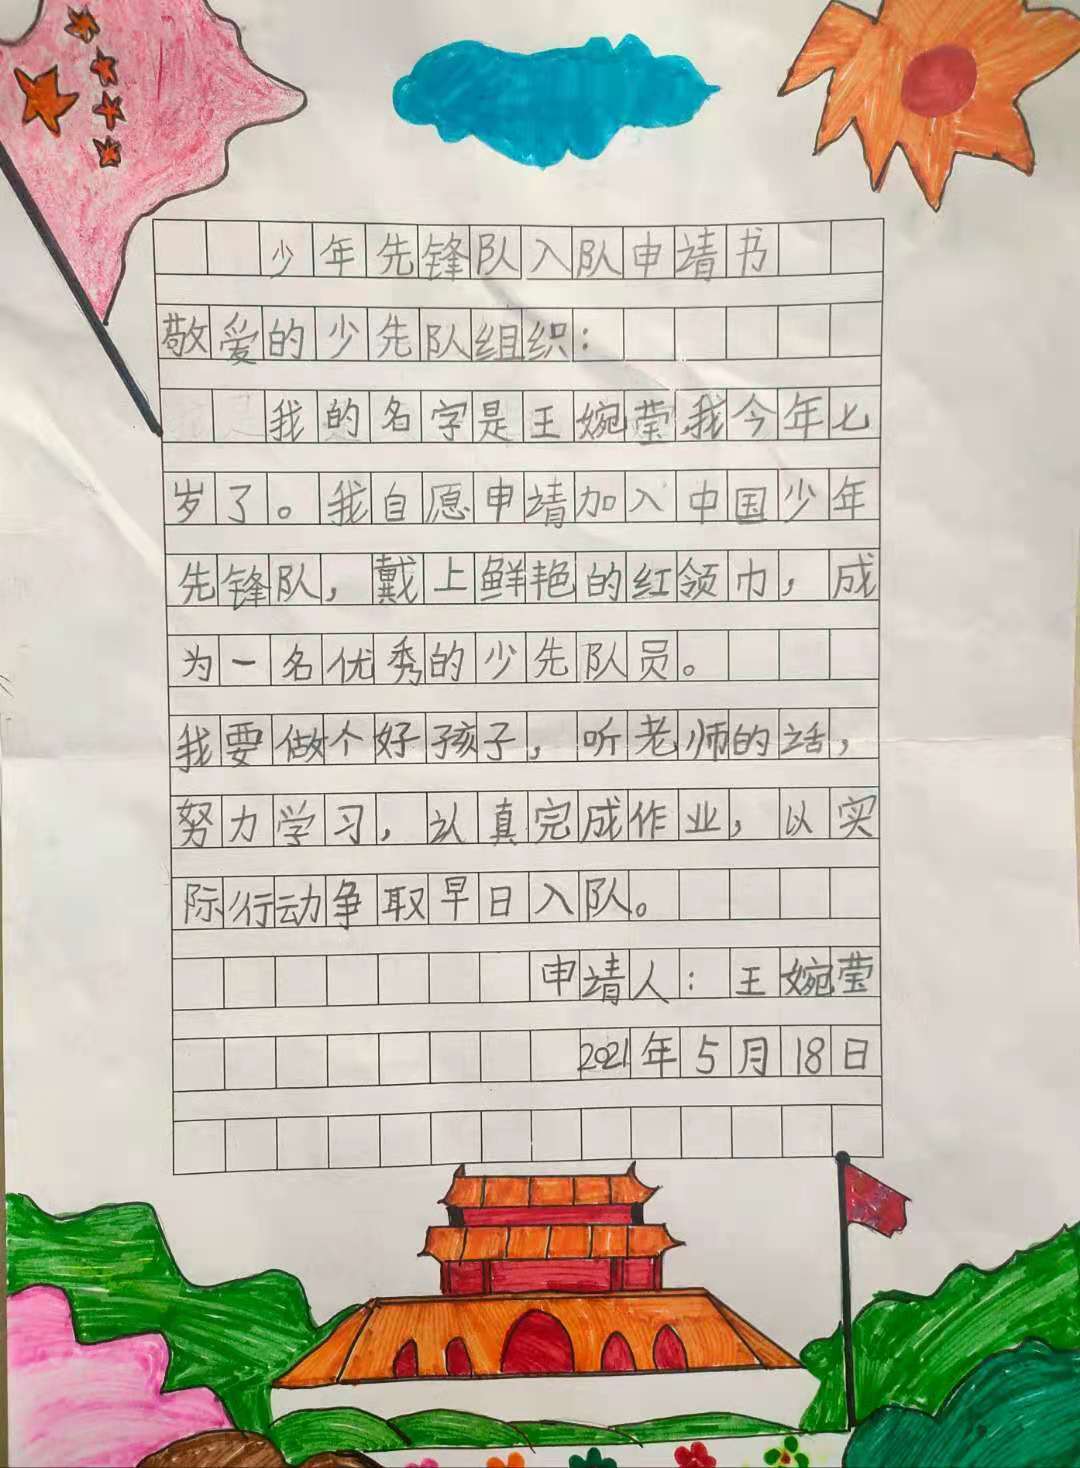 少年先锋队入队申请书
敬爱的少先队组织：
我的名字是王婉莹,我今年七
岁了。我自愿申请加入中国少年
先锋队，戴上鲜艳的红领巾，成
为一名优秀的少先队员。
我要做个好孩子，听老师的话，
努力学习，认真完成作业，以实
际行动争取早日入队。
申请人：王婉莹
2021年5月18日